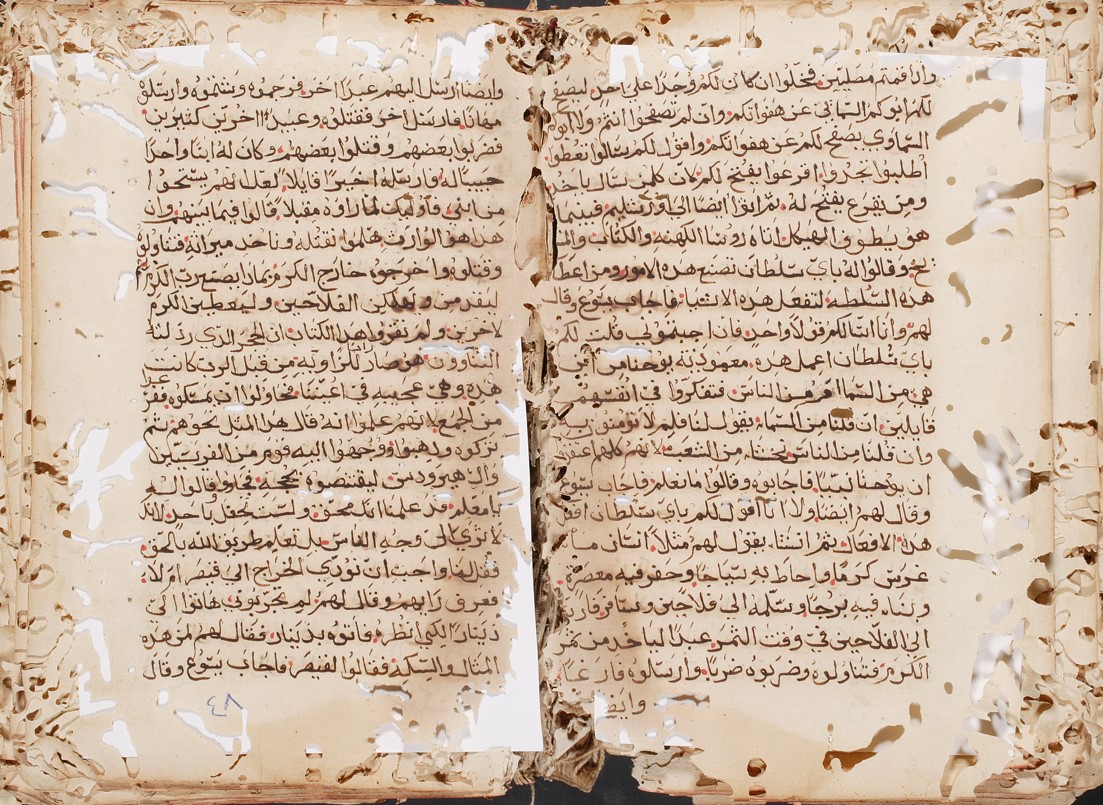 واذا قمتم مصليين فخلوا ان كان لكم وجدا على احد ليصفح
لكم ابوكم السمائي عن هفواتكم وان لم تصفحوا انتم ولا ابوكم
السماوي يصفح لكم عن هفواتكم واقول لكم سالوا تعطوا
اطلبوا تجدوا اقرعوا يفتح لكم لان كلمن سال ياخذ
ومن يقرع يفتح له ثم اتوا ايضا الى اورشليم فبينما
هو يطوف الهيكل اتاه روسا الكهنة والكتاب والمشا
يخ وقالوا له باي سلطان تصنع هذه الامور ومن اعطاك
هذه السلطة لتفعل هذه الاشيا فاجاب يسوع وقال
لهم وانا اسالكم قولا واحد فان اجبتموني قلت لكم
باي سلطان اعمل هذه معموذية يوحنا من اين
هي من السما ام من الناس فتفكروا في انفسهم
قايلين ان قلنا من السماء يقول لنا فلم لا تومنون به
وان قلنا من الناس نخشا من الشعب لانهم كلهم
ان يوحنا نبيا فاجابوه وقالوا ما نعلم فاجاب يسوع
وقال لهم ايضا ولا انا اقول لكم باي سلطان افعل
هذه الافعال ثم انشا يقول لهم مثلا انسان ما
غرس كرما واحاط به سياجا وحفر فيه معصرة
وبنا فيه برجا وسلمه الي فلاحين وسافر فارسل
الى الفلاحين في وقت الثمر عبدا لياخذ من ثمر
الكرم فتناولوه وضربوه ضربا وارسلوه فارغا
وايضا
وايضا ارسل اليهم عبدا اخر فرجموه وشتموه وارسلوه
مهانا فارسل اخر فقتلوه وعبيدا اخرين كثيرين
فضربوا بعضهم وقتلوا بعضهم وكان له ابنا واحدا
حبيبا له فارسله اخيرا قايلا لعلهم يستحوا
من ابني فاوليك لما راوه مقبلا قالوا فيما بينهم ان
هذا هو الوارث هلموا لنقتله وناخد ميراثه فتناولوه
وقتلوه واخرجوه خارج الكرم فماذا يصنع رب الكرم
ليقدمن ويهلكن الفلاحين وليعطين الكرم
لاخرين ولم تقروا هذا الكتاب ان الحجر الذي رذلته
البناوون هو صار لكرا وية من قبل الرب كانت
هذه وهي عجيبه في اعيننا فحاولوا ان يمسكوه ففز
عوا
من الجمع لانهم علموا انه قال هذا المثل نحوهم ثم
تركوه وذهبوا ووجهوا اليه قوم من الفريسيين
وال هيرودس ليقتنصوه بحجة في وقالوا له
يا معلم قد علمنا انك محق ولست تحفل باحد لانك
لا ترى الى وجه الناس بل تعلم طريق الله بالحق
فقل لنا واجب ان نودي الخراج الى قيصر ام لا
فعرف رايهم وقال لهم لم تجربوني هاتوا الي
دينار لكي انظره فاتوه بدينار فقال لهم لمن هذه
المثال والسكة فقالوا لقيصر فاجاب يسوع وقال
٤٨